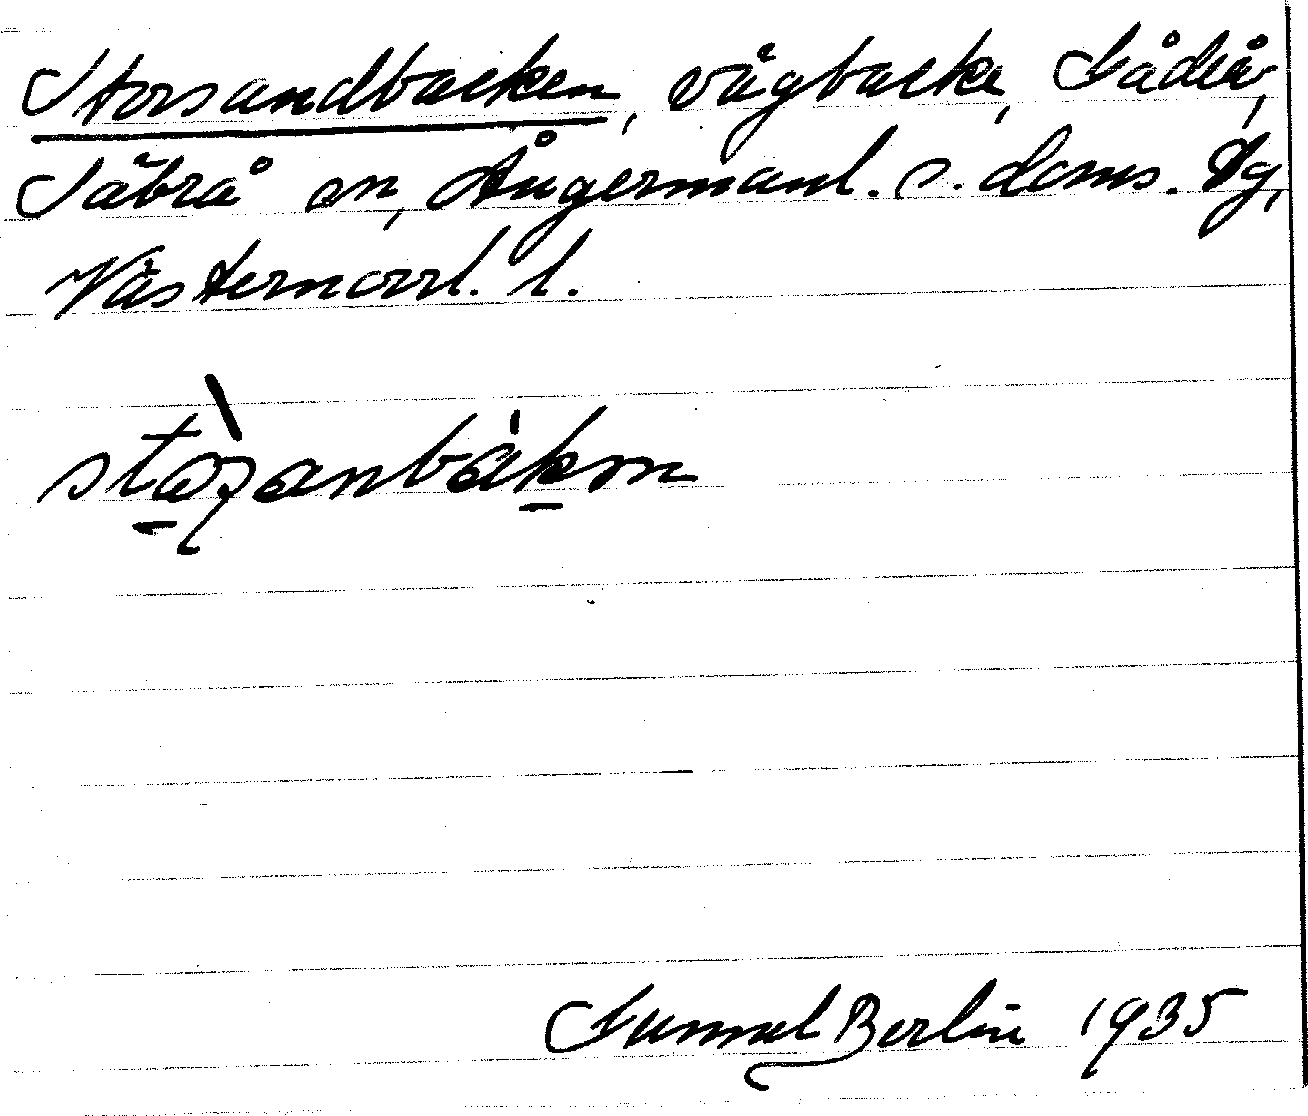 Storsandbacken, vägbacke, Nådrå,
Säbrå sn, Ångermanl. s. doms. dg,
Västernorrl. l.
stòşanbák̠ən
Gunnel Berlin 1935